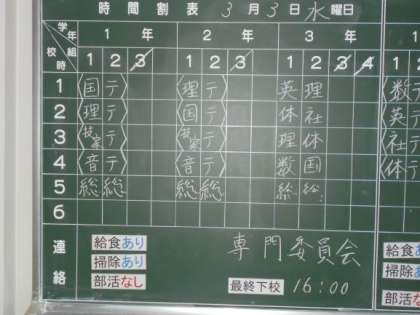 時間割表 3月3日水曜日
学年 組 校時
1年 2年 3年 1
1 2 3 1 2 3 1 2 3 4
1 〈国テ〉 〈理テ〉 英 理 〈数テ
2 〈理テ〉 〈国テ〉 体 社 〈英テ
3 〈技家テ〉 〈技家テ〉 理 体 〈社テ
4 〈音テ〉 〈音テ〉 数 国 〈体テ
5 総 総 総 総 総 総
6
連絡
専門委員会
給食あり
掃除あり
部活なし
最終下校 16:00
給食あ
掃除あ
部活な